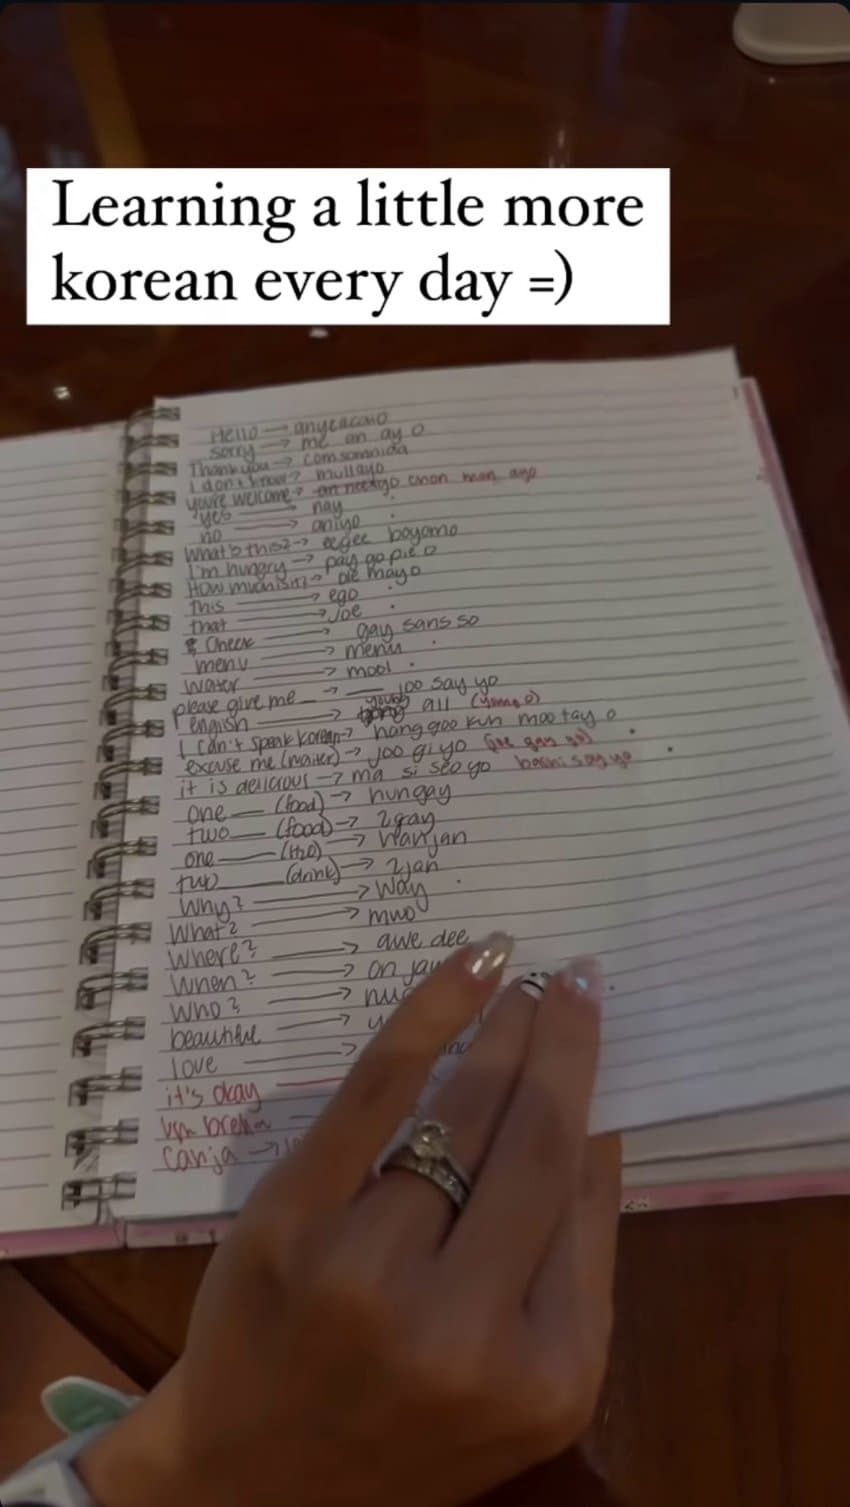 Learning a little more
korean every day =)
Hello → anyeacaio
sorry → me an ay o
Thank you → comsomnida
I don't know? → mullayo
you're welcome → an neekgo chon man ayo
yes → nay
no → aniyo
What's this? → eegee boyomo
I'm hungry → pay go pie o
How much is it? → ole mayo
This → ego
that → Joe
Check → gay sans so
menu → menu
Water → mool
please give me → ___ joo say yo
english → young all (yong o)
I can't speak Korean → hang goo kun moo tay o
excuse me (waiter) → joo gi yo
it is delicious → ma si seo yo
one (food) → hungay
two (food) → 2gay
one (H2O) → hanjan
two (drink) → 2jan
Why? → Way
What? → mwo
Where? → awe dee
When? → on
Who? →
beautiful →
love →
it's okay
Canja →